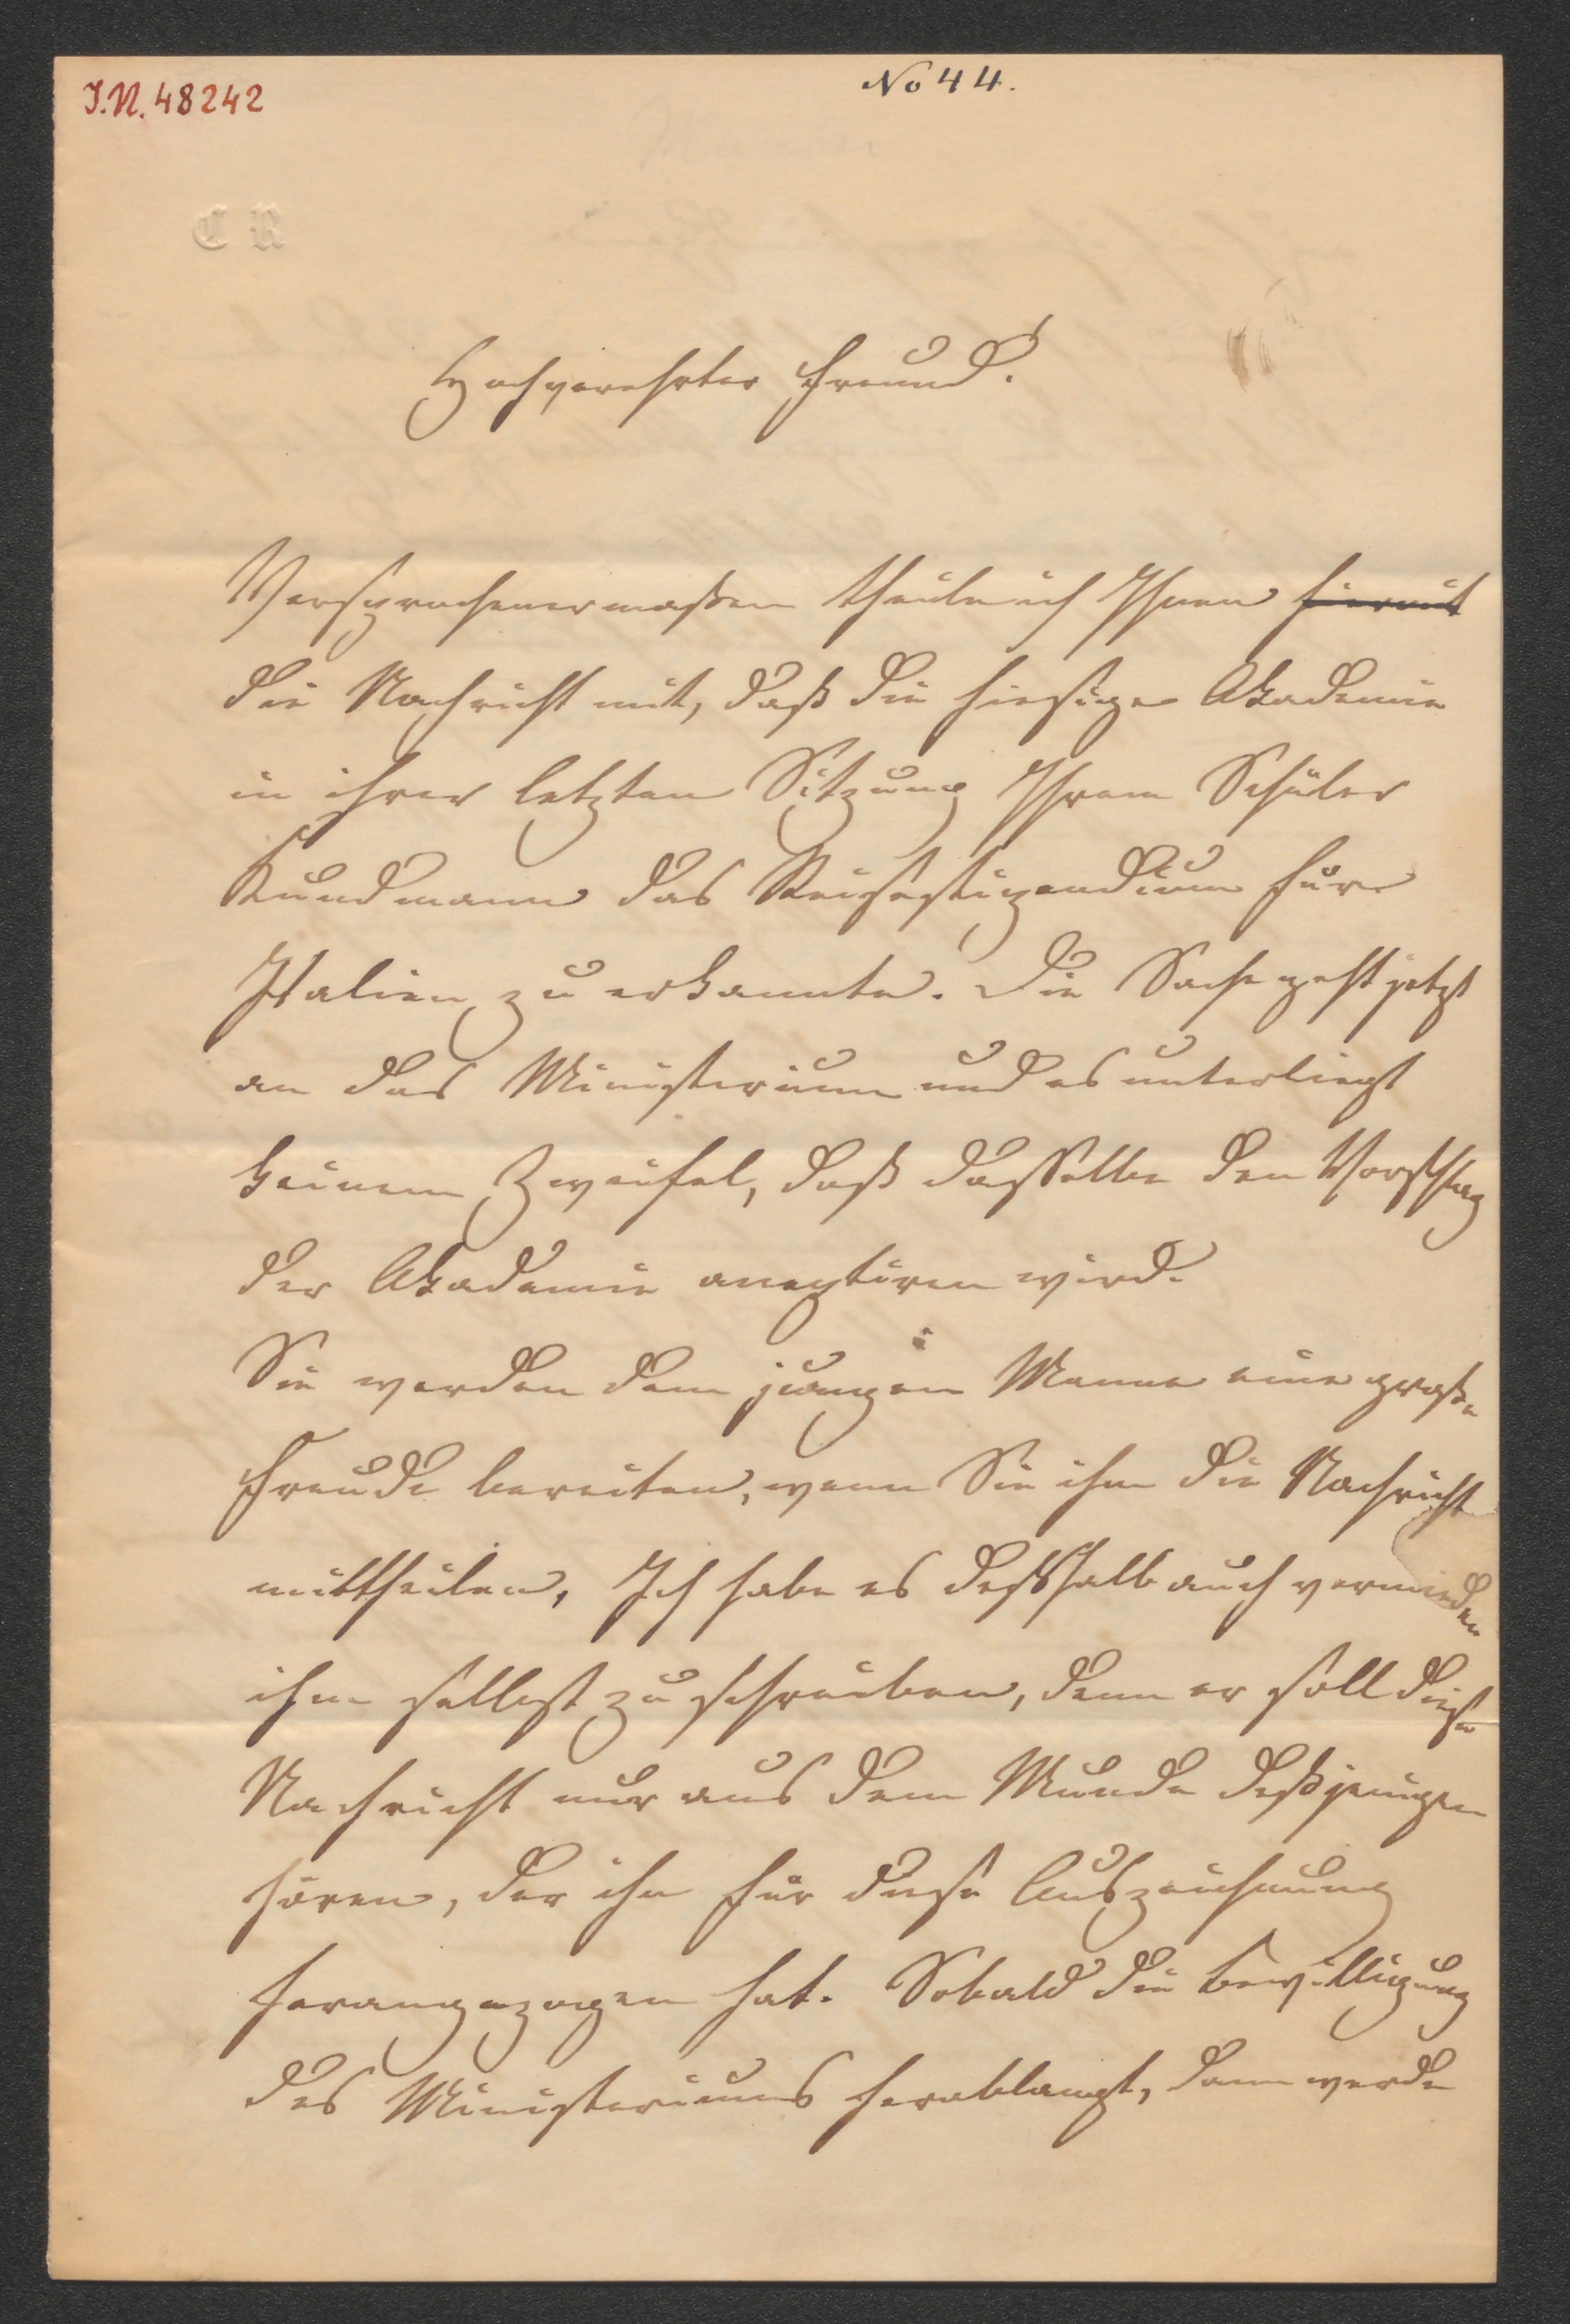 I.N. 48242
No 44.
C R
Hochverehrter Freund!
Versprochenermaßen theile ich Ihnen hiermit
die Nachricht mit, daß die hiesige Akademie
in ihrer letzten Sitzung Ihrem Schüler
Kundmann das Reisestipendium für
Italien zuerkannte. Die Sache geht jetzt
an das Ministerium und es unterliegt
keinem Zweifel, daß dasselbe den Vorschlag
der Akademie aneptiren wird.
Sie werden dem jungen Manne eine große
Freude bereiten, wenn Sie ihm die Nachricht
mittheilen, Ich habe es deßhalb auch vermieden
ihm selbst zu schreiben, denn er soll diese
Nachricht nur aus dem Munde deßjenigen
hören, der ihn für diese Auszeichnung
herangezogen hat. Sobald die Bewilligung
des Ministeriums herablangt, dann werde